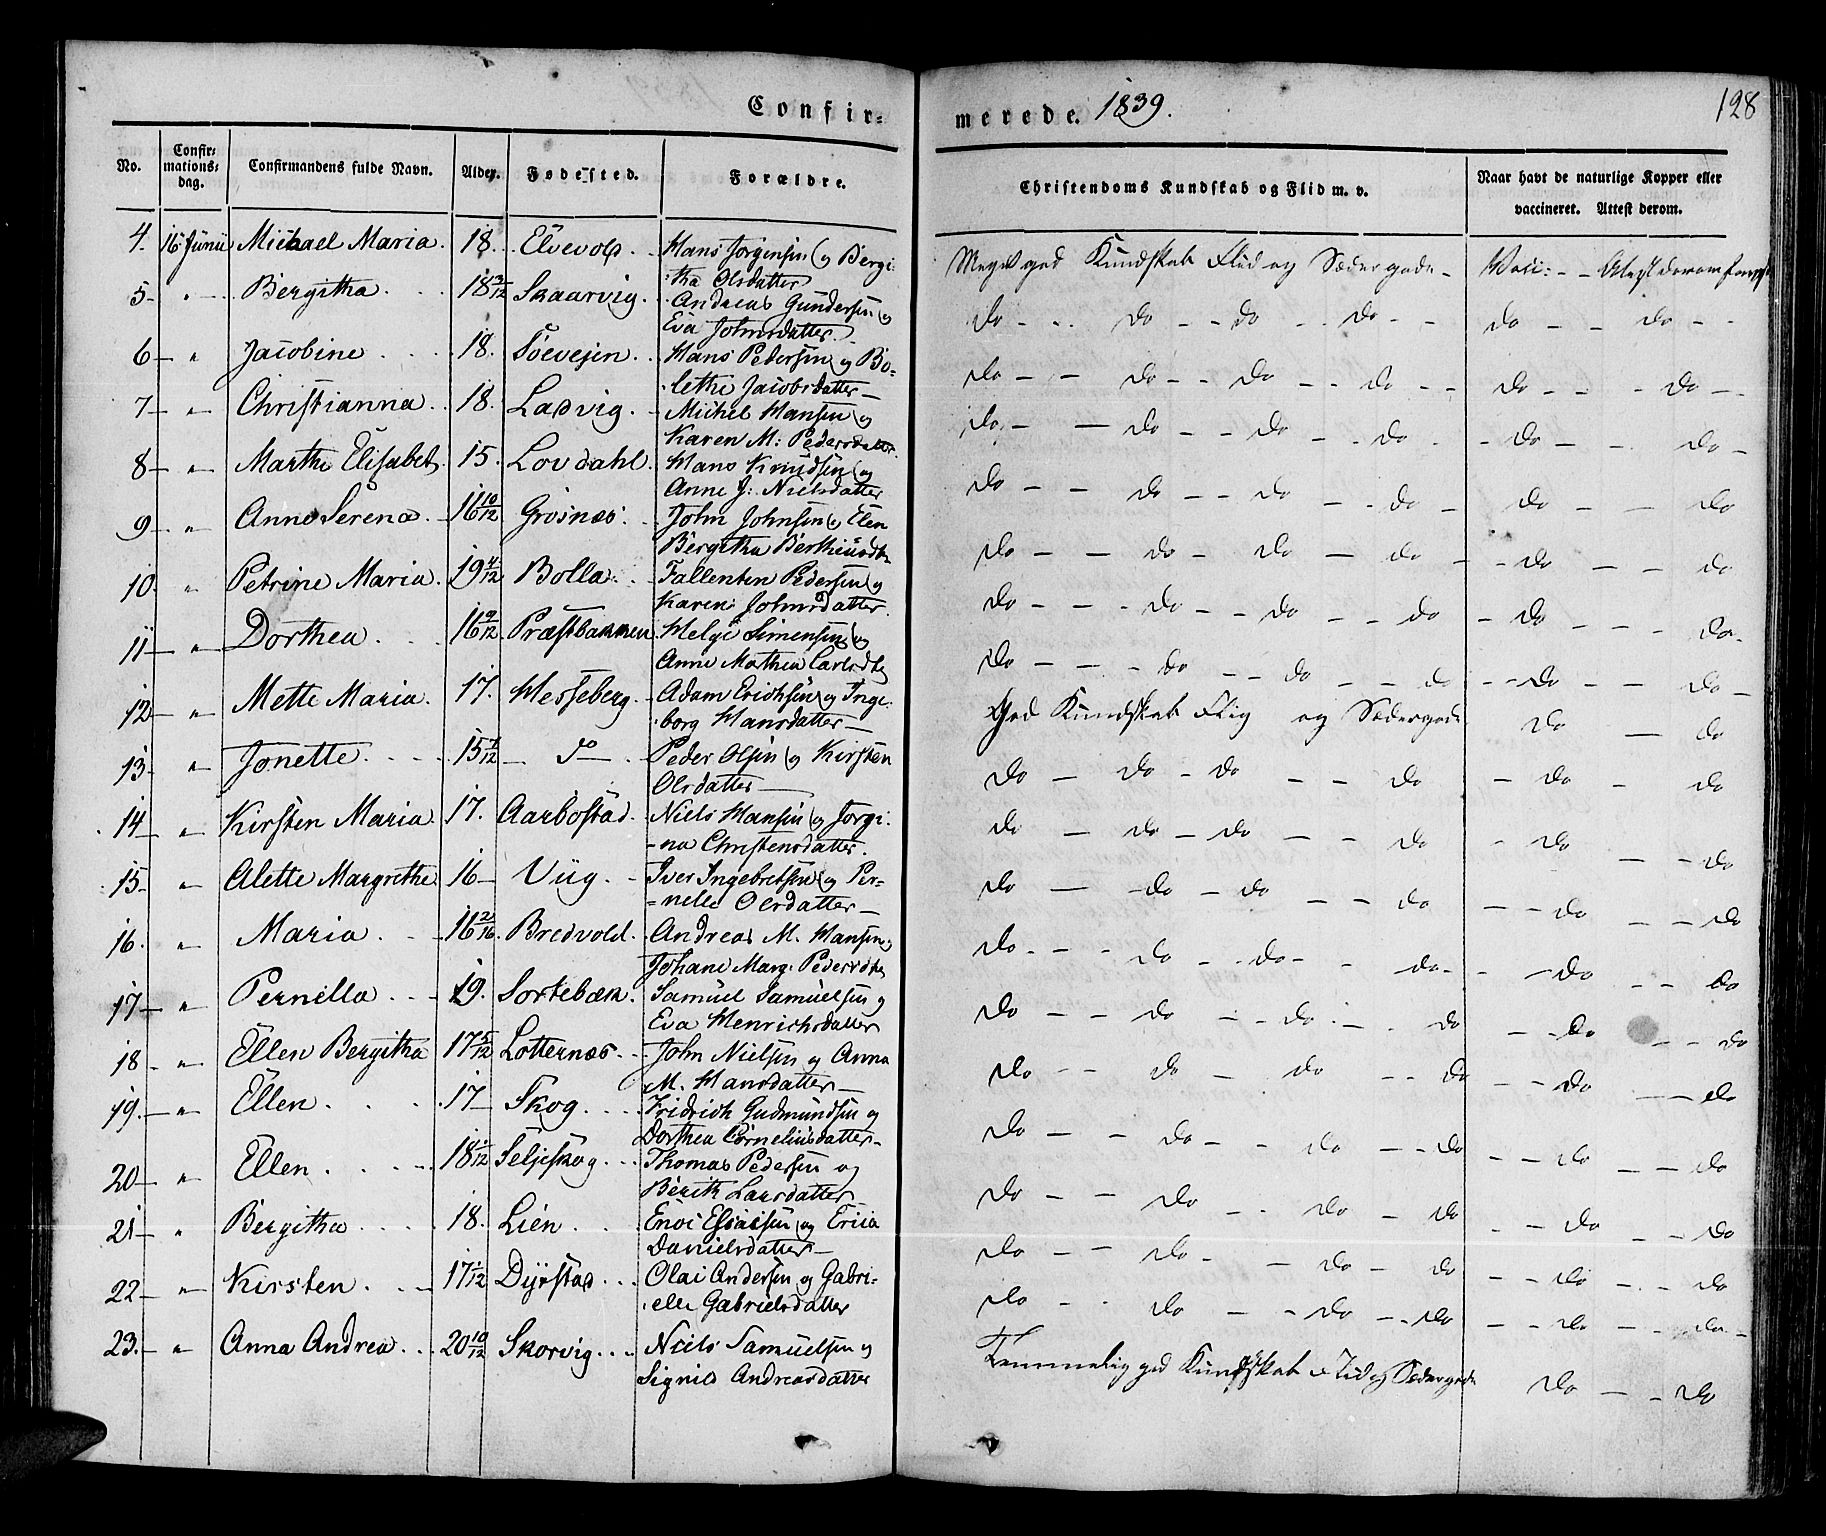 Confir-
merede. 1839.
128
No. Confir-mations-dag. Confirmandens fulde Navn. Alder. Fodested. Forældre. Christendoms Kundskab og Flid m. v. Naar havt de naturlige Kopper eller vaccineret. Attest derom.
4. 16 Junii Michael Maria. 18. Elvevold. Hans Jorgensen og Bergi-
tha Olsdatter
Meget god Kundskab Flid og Sæder gode - Vacc: - - Atest derom
5- " Bergitha. 18 3/12 Skaarvig. Andreas Gundersen og
Eva Johnsdatter.
do - do - do - do - do - do
6- " Jacobine. 18. Töevejen. Hans Pedersen og Bo-
lethe Jacobsdatter-
do - do - do - do - do - do
7- " Christianna. 18. Ladvig. Michel Hansen og
Karen M: Pedersdatter.
do - do - do - do - do - do
8- " Marthe Elisabet. 15. Lovdahl. Hans Knudsen og
Anne J: Nielsdatter
do - do - do - do - do - do
9- " Anne Serena. 16 10/12 Grosnæs. John Johnsen og Elen
Bergitha
do - do - do - do - do - do
10. " Petrine Maria. 19 4/12 Bolla. Fallenten Pedersen og
Karen Johnsdatter.
do - do - do - do - do - do
11- " Dorthea. 16 9/12 Præstbakken. Helge Simensen og
Anne Marthea Carlsdtr
do - do - do - do - do - do
12- " Mette Maria. 17. Hesseberg. Adam Erichsen og Inge-
borg Hansdatter-
God Kundskab Flig og Sæder gode do - do
13- " Jonette. 15 7/12 - do - Peder Olsen og Kirsten
Olsdatter-
do - do - do - do - do - do
14- " Kirsten Maria. 17. Aarbostad. Niels Hansen og Jorgi-
na Christensdatter.
do - do - do - do - do - do
15- " Alette Margrethe 16- Viig. Iver Ingebretsen og Per-
nele Olsdatter-
do - do - do - do - do - do
16. " Maria. 16 2/16 Bredvold. Andreas M. Hansen og
Johane Marg: Pedersdtr
do - do - do - do - do - do
17- " Pernilla. 19. Sortebæk. Samuel Samuelsen og
Eva Henrichsdatter
do - do - do - do - do - do
18- " Ellen Bergitha 17 5/12 Lotternæs. John Nielsen og Anna
M. Hansdatter-
do - do - do - do - do - do
19. " Ellen. 17- Skog. Fridrich Gudmundsen og
Dorthea Corneliusdatter-
do - do - do - do - do - do
20- " Ellen. 18 1/12 Seljeskog. Thomas Pedersen og
Berith Larsdatter
do - do - do - do - do - do
21- " Bergitha. 18. Lien. Enoc Esaisen og Ericia
Danielsdatter-
do - do - do - do - do - do
22- " Kirsten. 17 1/12 Dyrstad. Olai Andersen og Gabri-
ele Gabrielsdatter
do - do - do - do - do - do
23.- " Anna Andrea. 20 10/12 Skorvig. Niels Samuelsen og
Signid Andreasdatter
Temmelig god Kundskab Flid og Sæder gode do - do